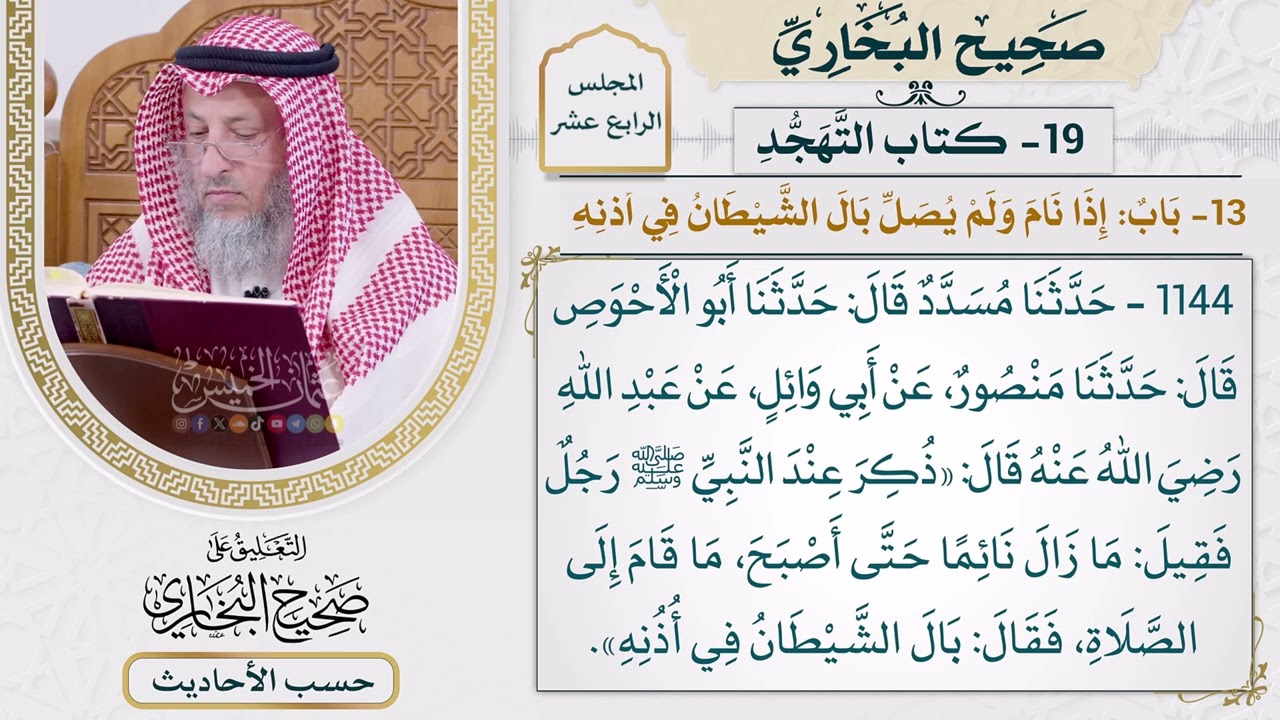 صَحِيح البُخَارِيِّ
المجلس
الرابع عشر
19- كتاب التَّهَجُّدِ
13- بَابٌ: إِذَا نَامَ وَلَمْ يُصَلِّ بَالَ الشَّيْطَانُ فِي أُذُنِهِ
1144 - حَدَّثَنَا مُسَدَّدٌ قَالَ: حَدَّثَنَا أَبُو الْأَحْوَصِ
قَالَ: حَدَّثَنَا مَنْصُورٌ، عَنْ أَبِي وَائِلٍ، عَنْ عَبْدِ اللهِ
رَضِيَ اللهُ عَنْهُ قَالَ: «ذُكِرَ عِنْدَ النَّبِيِّ ﷺ رَجُلٌ
فَقِيلَ: مَا زَالَ نَائِمًا حَتَّى أَصْبَحَ، مَا قَامَ إِلَى
الصَّلَاةِ، فَقَالَ: بَالَ الشَّيْطَانُ فِي أُذُنِهِ».
عثمان الخميس
التَّعْلِيقُ عَلَى
صَحِيحُ البُخَارِي
حسب الأحاديث